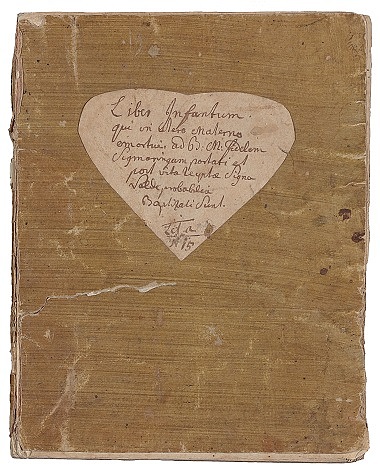 Liber Infantum
qui in utero Materno
emortui, ad B. M. fidelem
Sigmaringam portati et
post vitae receptae Signa
Valde probabilia
Baptizati Sunt.
N 15